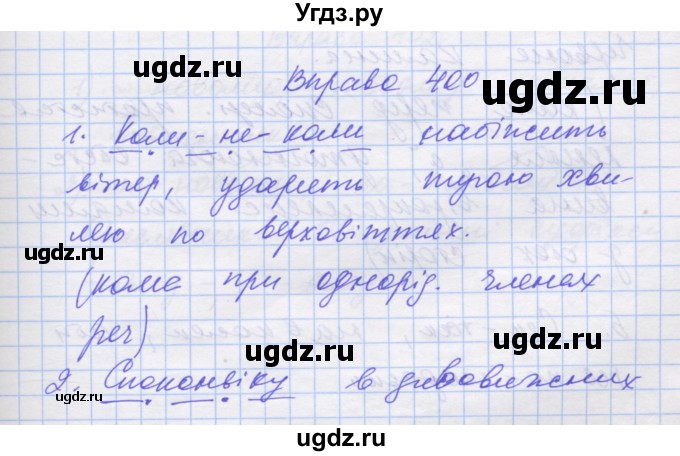 Угдз.ру
Вправа 400
1. Коли-не-коли набіжить
вітер, ударить тугою хви-
лею по верховіттях.
(кома при однорід. членах
реч)
2. Споконвіку в дивовижних
ugdz.ru
ugdz.ru
ugdz.ru
ugdz.ru
ugdz.ru
ugdz.ru
ugdz.ru
ugdz.ru
ugdz.ru